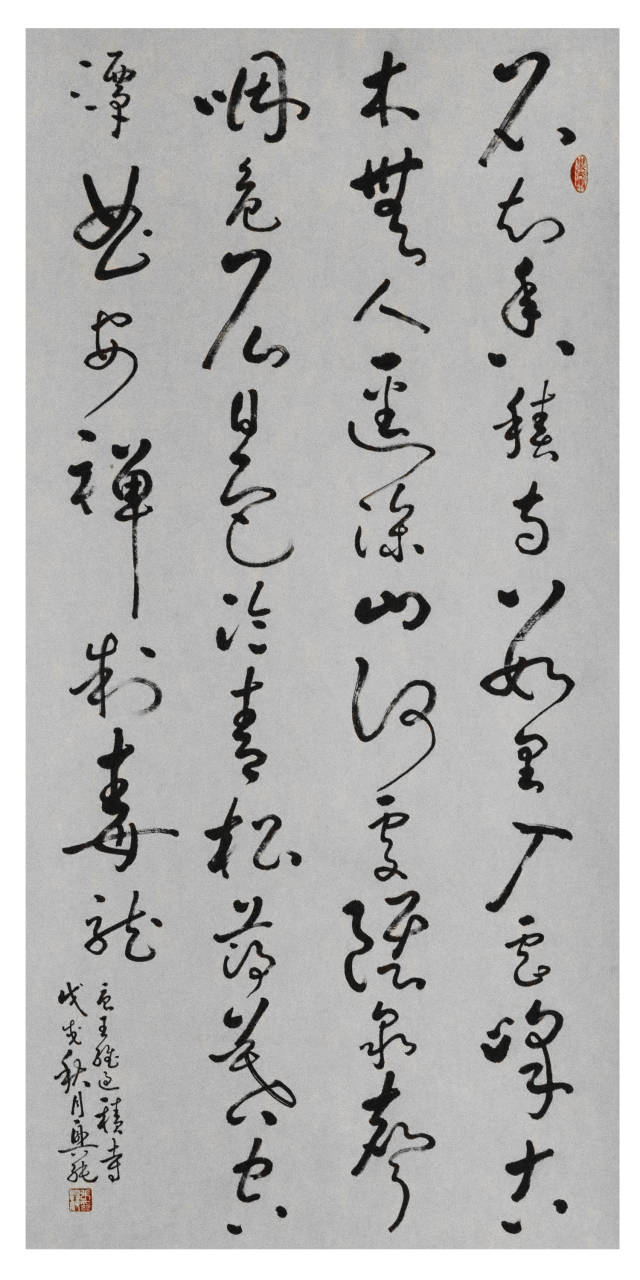 不知香積寺數里入雲峰古
木無人逕深山何處鐘泉聲
咽危石日色冷青松薄暮空
潭曲安禪制毒龍
王維過積寺
戊戌秋月